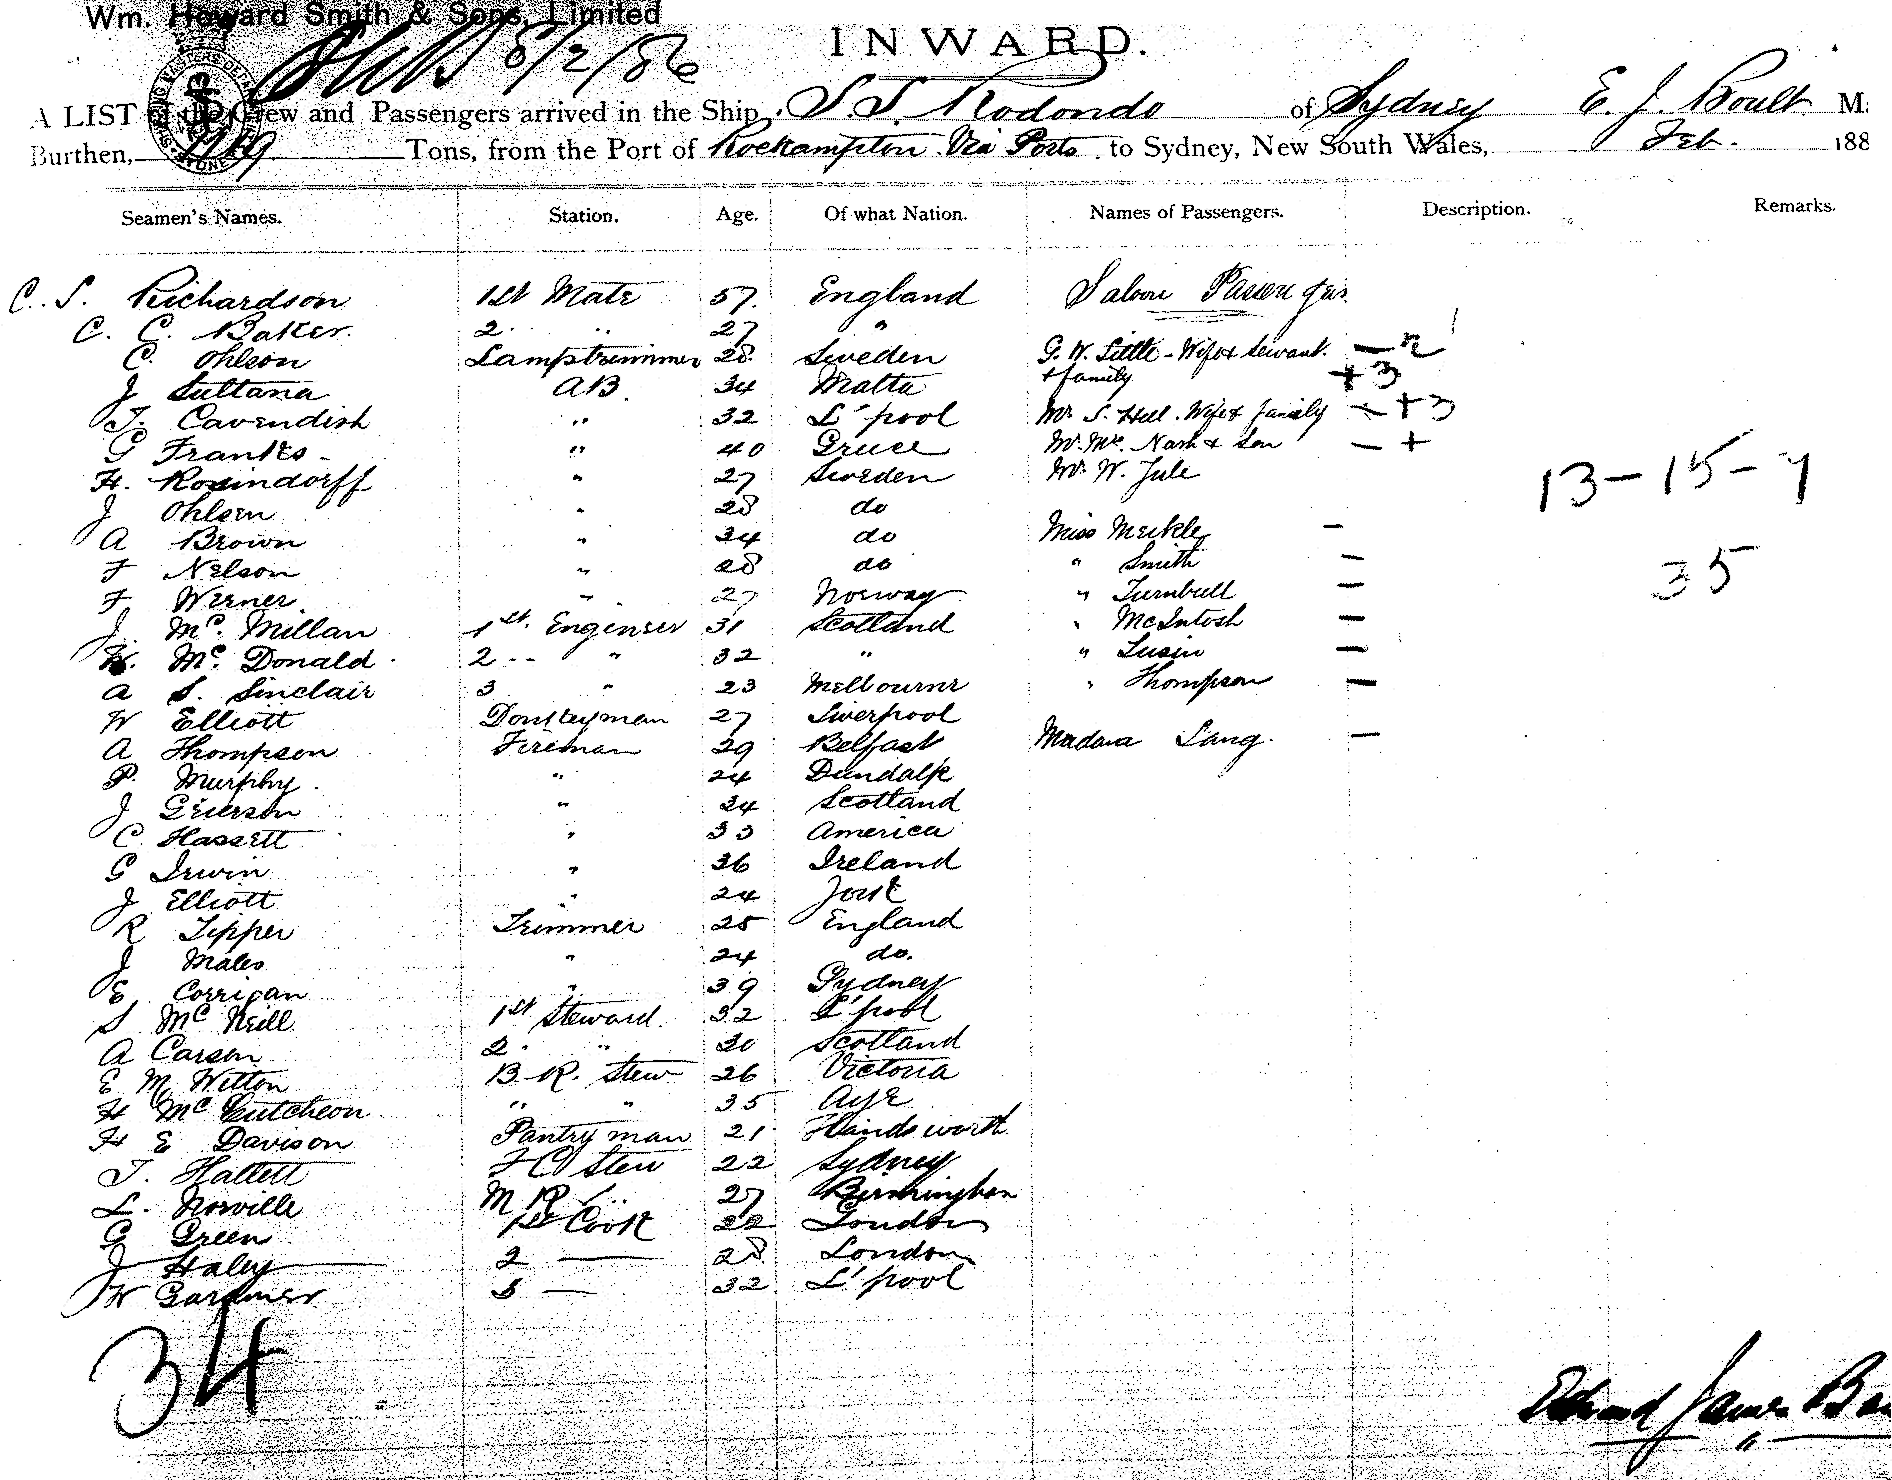 Wm. Howard Smith & Sons, Limited
8/2/86
INWARD.
A LIST of the Crew and Passengers arrived in the Ship S.S. Rodondo of Sydney E. J. Boult M
Burthen, Tons, from the Port of Rockhampton Via Ports to Sydney, New South Wales, Feb. 188
Seamen's Names. Station. Age. Of what Nation. Names of Passengers. Description. Remarks.
C. S. Richardson 1st Mate 57 England Saloon Passengers
C. C. Baker 2 " 27 "
C. Ohlson Lamptrimmer 28 Sweden G. W. Little - Wife & Servant.
J Sultana AB. 34 Malta + family +3
T. Cavendish " 32 L'pool Mr S. Hill. Wife & family - +3
G Franks " 40 Greece Mr. Mc. Nash & Son - +
H. Rosindorff " 27 Sweden Mr W. Jule 13-15-7
J Ohlsen " 28 do
A Brown " 34 do Miss Meikle -
F Nelson " 28 do " Smith - 35
F Werner " 27 Norway " Turnbull -
J. Mc. Millan 1st. Engineer 31 Scotland " McIntosh -
Mc. Donald 2 " 32 " " -
A S. Sinclair 3 " 23 Melbourne " Thompson -
W Elliott Donkeyman 27 Liverpool
A Thompson Fireman 29 Belfast Lang. -
P. Murphy " 24 Dundalk
J Grierson " 34 Scotland
C. Hassett " 33 America
G Irwin " 36 Ireland
J Elliott " 24
R Tipper Trimmer 25 England
J Males " 24 do.
E. Corrigan " 39 Sydney
S Mc Neill 1st Steward 32 L'pool
A Carson 2 " 30 Scotland
E M Witton B. R. Stew 26 Victoria
H Mc Cutcheon " " 35
H E Davison Pantryman 21 Handsworth
T. Hallett F C Stew 22 Sydney
L. Norville M R " 27 Birmingham
G Green 1st Cook 22 London
J Haley 2 — 28 London
W Gardiner 3 — 32 L'pool
34
Edward James